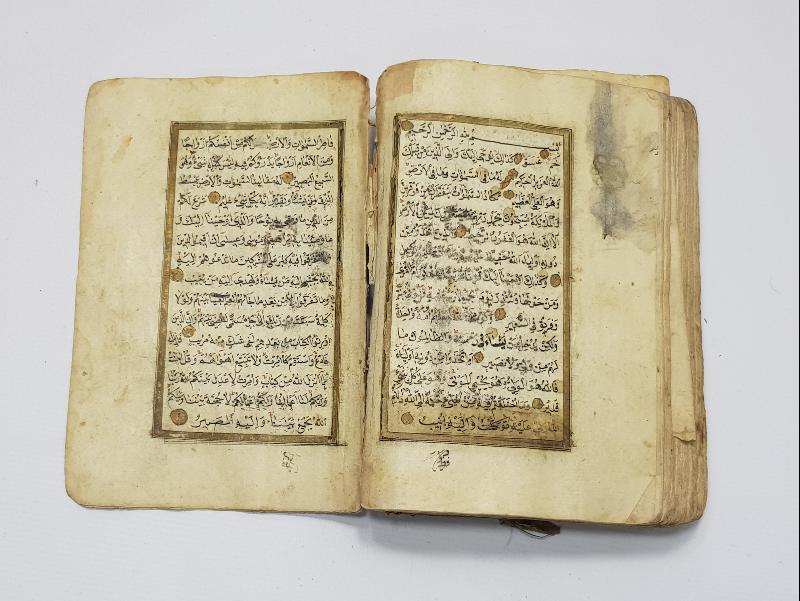 بسم الله الرحمن الرحيم
حم عسق كذلك يوحي اليك والى الذين من قبلك
الله العزيز الحكيم له ما في السموات وما في الارض
وهو العلي العظيم تكاد السموات يتفطرن من فوقهن
والملئكة يسبحون بحمد ربهم الارض
الا ان الله هو الغفور الرحيم والذين اتخذوا من
دونه اولياء الله حفيظ
وكذلك اوحينا اليك القرى
ومن حولها وتنذر يوم
وفريق في السعير
ولكن يدخل من يشاء في رحمته والظالمون ما
لهم من ولي ولا نصير ام اتخذوا من دونه اولياء
فالله هو الولي وهو يحيي الموتى وهو على كل شيء
قدير وما اختلفتم فيه من شيء فحكمه الى الله ذلكم
الله ربي عليه توكلت واليه انيب
فاطر
فاطر السموات والارض جعل لكم من انفسكم ازواجا
ومن الانعام ازواجا يذرؤكم فيه ليس كمثله شيء وهو
السميع البصير له مقاليد السموات والارض يبسط
الرزق لمن يشاء ويقدر انه بكل شيء عليم شرع لكم
من الدين ما وصى به نوحا والذي اوحينا اليك و
ما وصينا به ابرهيم وموسى وعيسى ان اقيموا الدين
ولا تتفرقوا فيه كبر على المشركين ما تدعوهم اليه
الله يجتبي اليه من يشاء ويهدي اليه من ينيب
وما تفرقوا الا من بعد ما جاءهم العلم بغيا بينهم ولولا
كلمة سبقت من ربك الى اجل مسمى لقضي بينهم وان الذين
اورثوا الكتاب من بعدهم لفي شك منه مريب فلذلك
فادع واستقم كما امرت ولا تتبع اهواءهم وقل امنت
بما انزل الله من كتاب وامرت لاعدل بينكم الله ربنا وربكم
لنا اعمالنا ولكم اعمالكم لا حجة بيننا وبينكم
الله يجمع بيننا واليه المصير